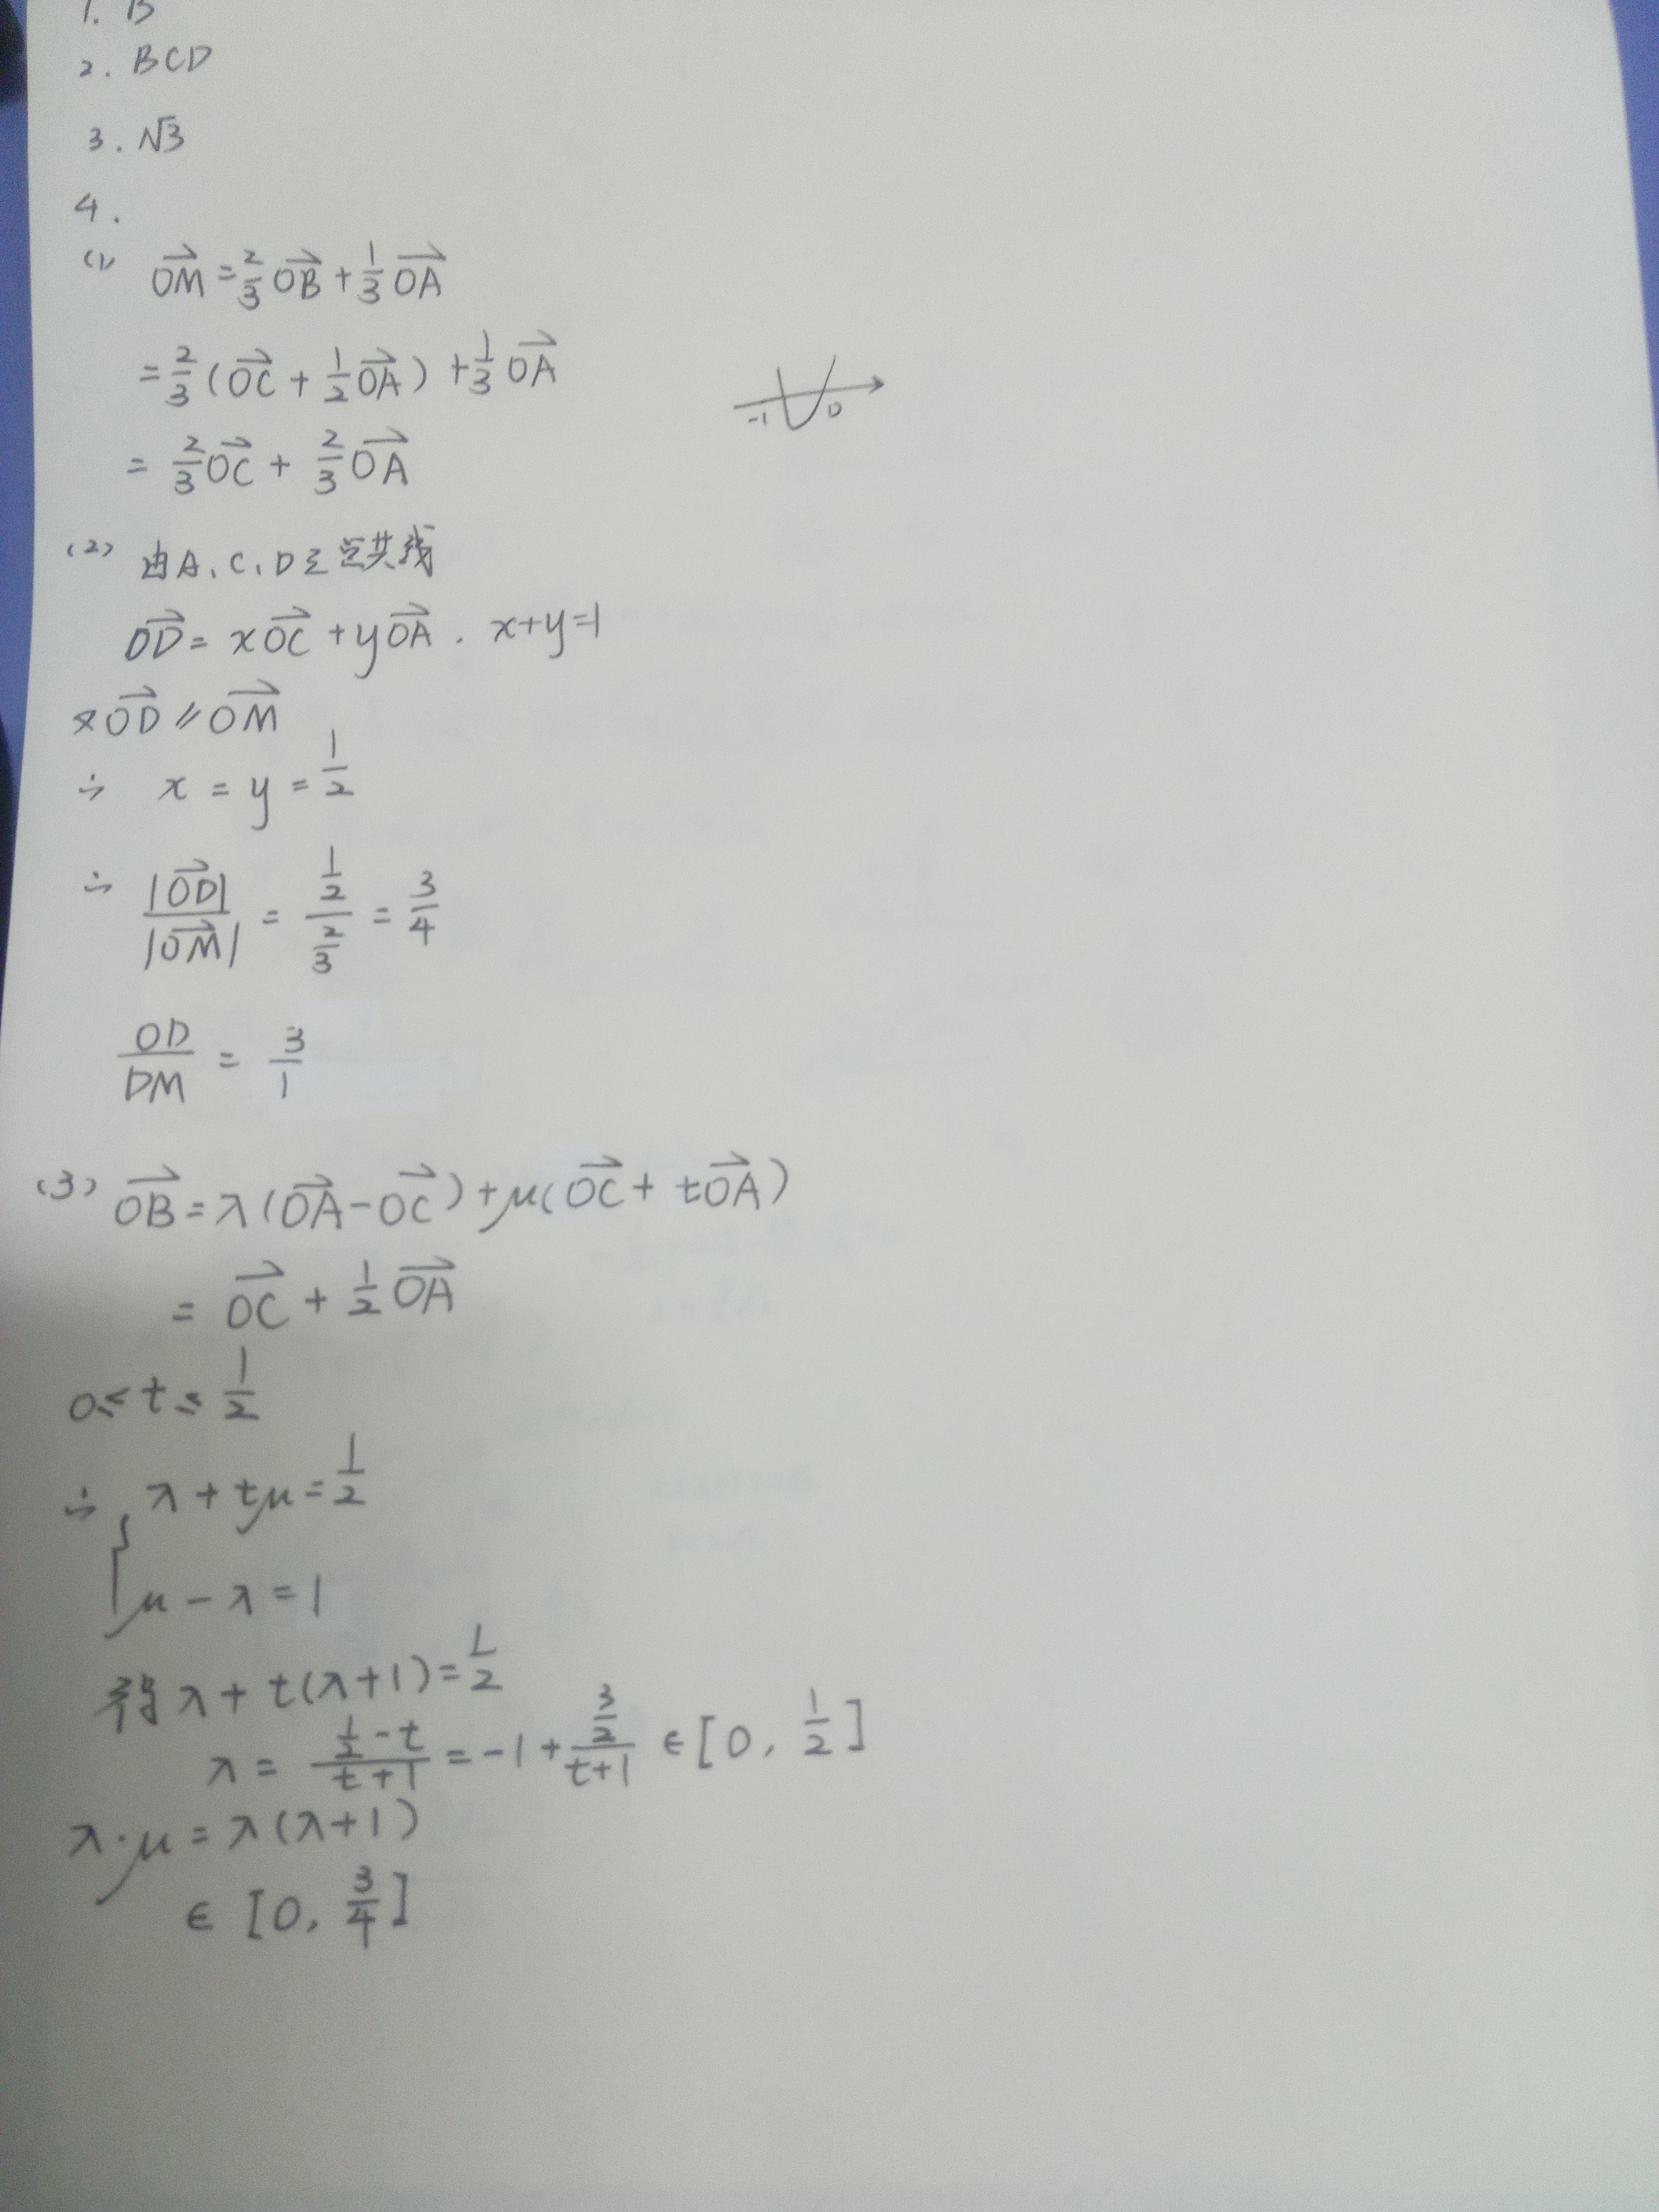 1. B
2. BCD
3. √3
4.
(1) OM⃗ = 2/3 OB⃗ + 1/3 OA⃗
= 2/3 (OC⃗ + 1/2 OA⃗) + 1/3 OA⃗
-1 0
= 2/3 OC⃗ + 2/3 OA⃗
(2) 由A、C、D三点共线
OD⃗ = xOC⃗ + yOA⃗. x+y=1
又OD⃗ // OM⃗
∴ x = y = 1/2
∴ |OD⃗|/|OM⃗| = (1/2)/(2/3) = 3/4
OD/DM = 3/1
(3) OB⃗ = λ(OA⃗ - OC⃗) + μ(OC⃗ + tOA⃗)
= OC⃗ + 1/2 OA⃗
0 ≤ t ≤ 1/2
∴ { λ + tμ = 1/2
μ - λ = 1
得 λ + t(λ+1) = 1/2
λ = (1/2 - t)/(t+1) = -1 + (3/2)/(t+1) ∈ [0, 1/2]
λ·μ = λ(λ+1)
∈ [0, 3/4]